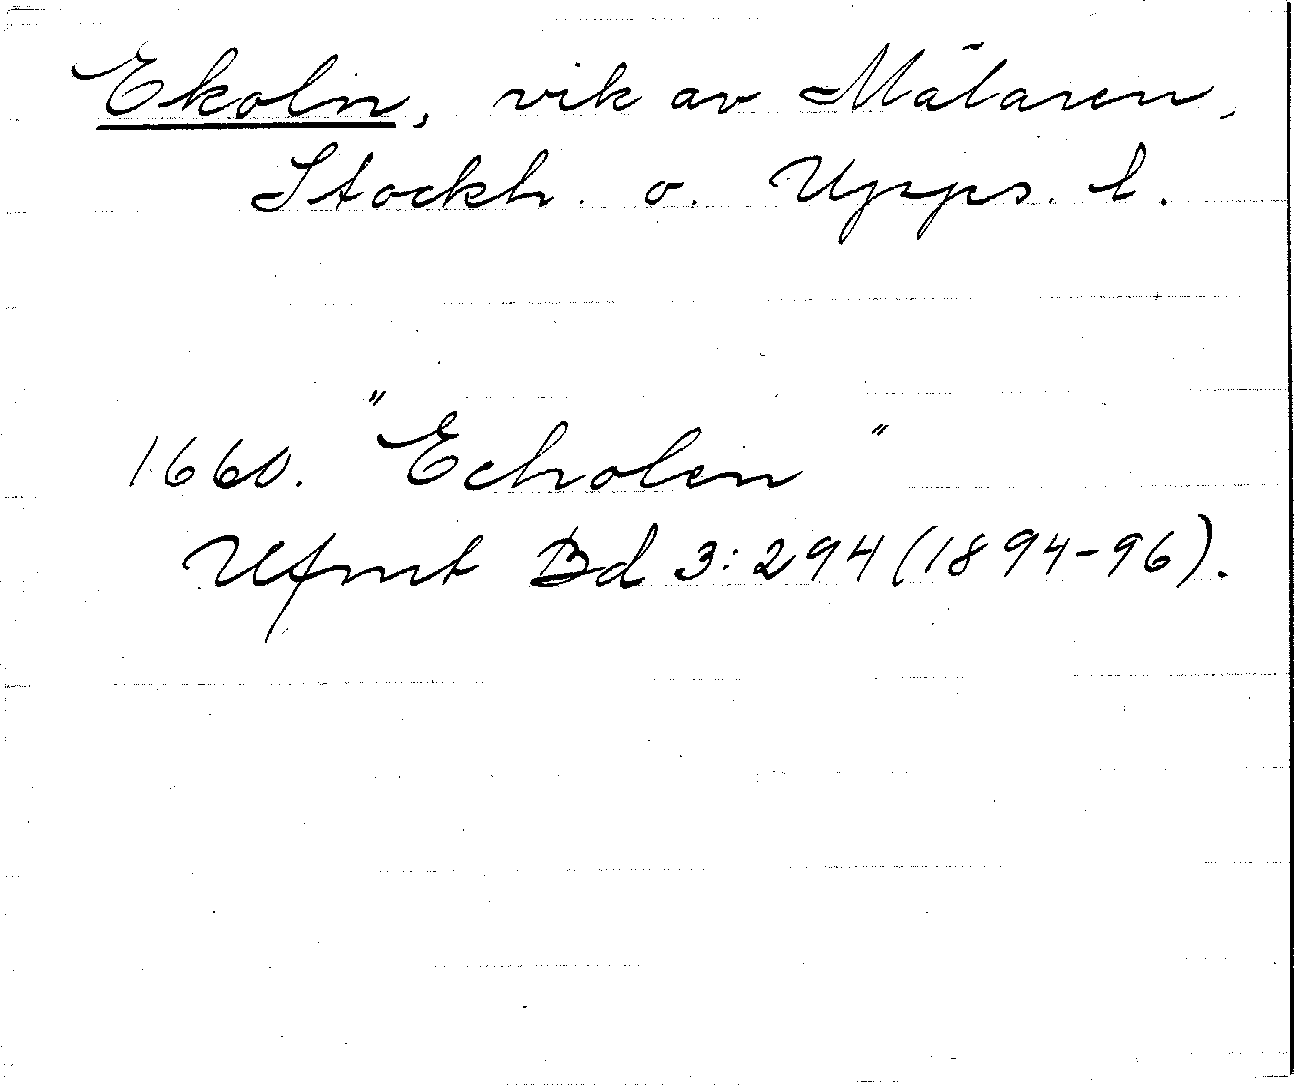 Ekoln, vik av Mälaren,
Stockh. o. Upps. l.
1660. "Echolen"
Ufmt Bd 3:294 (1894-96).